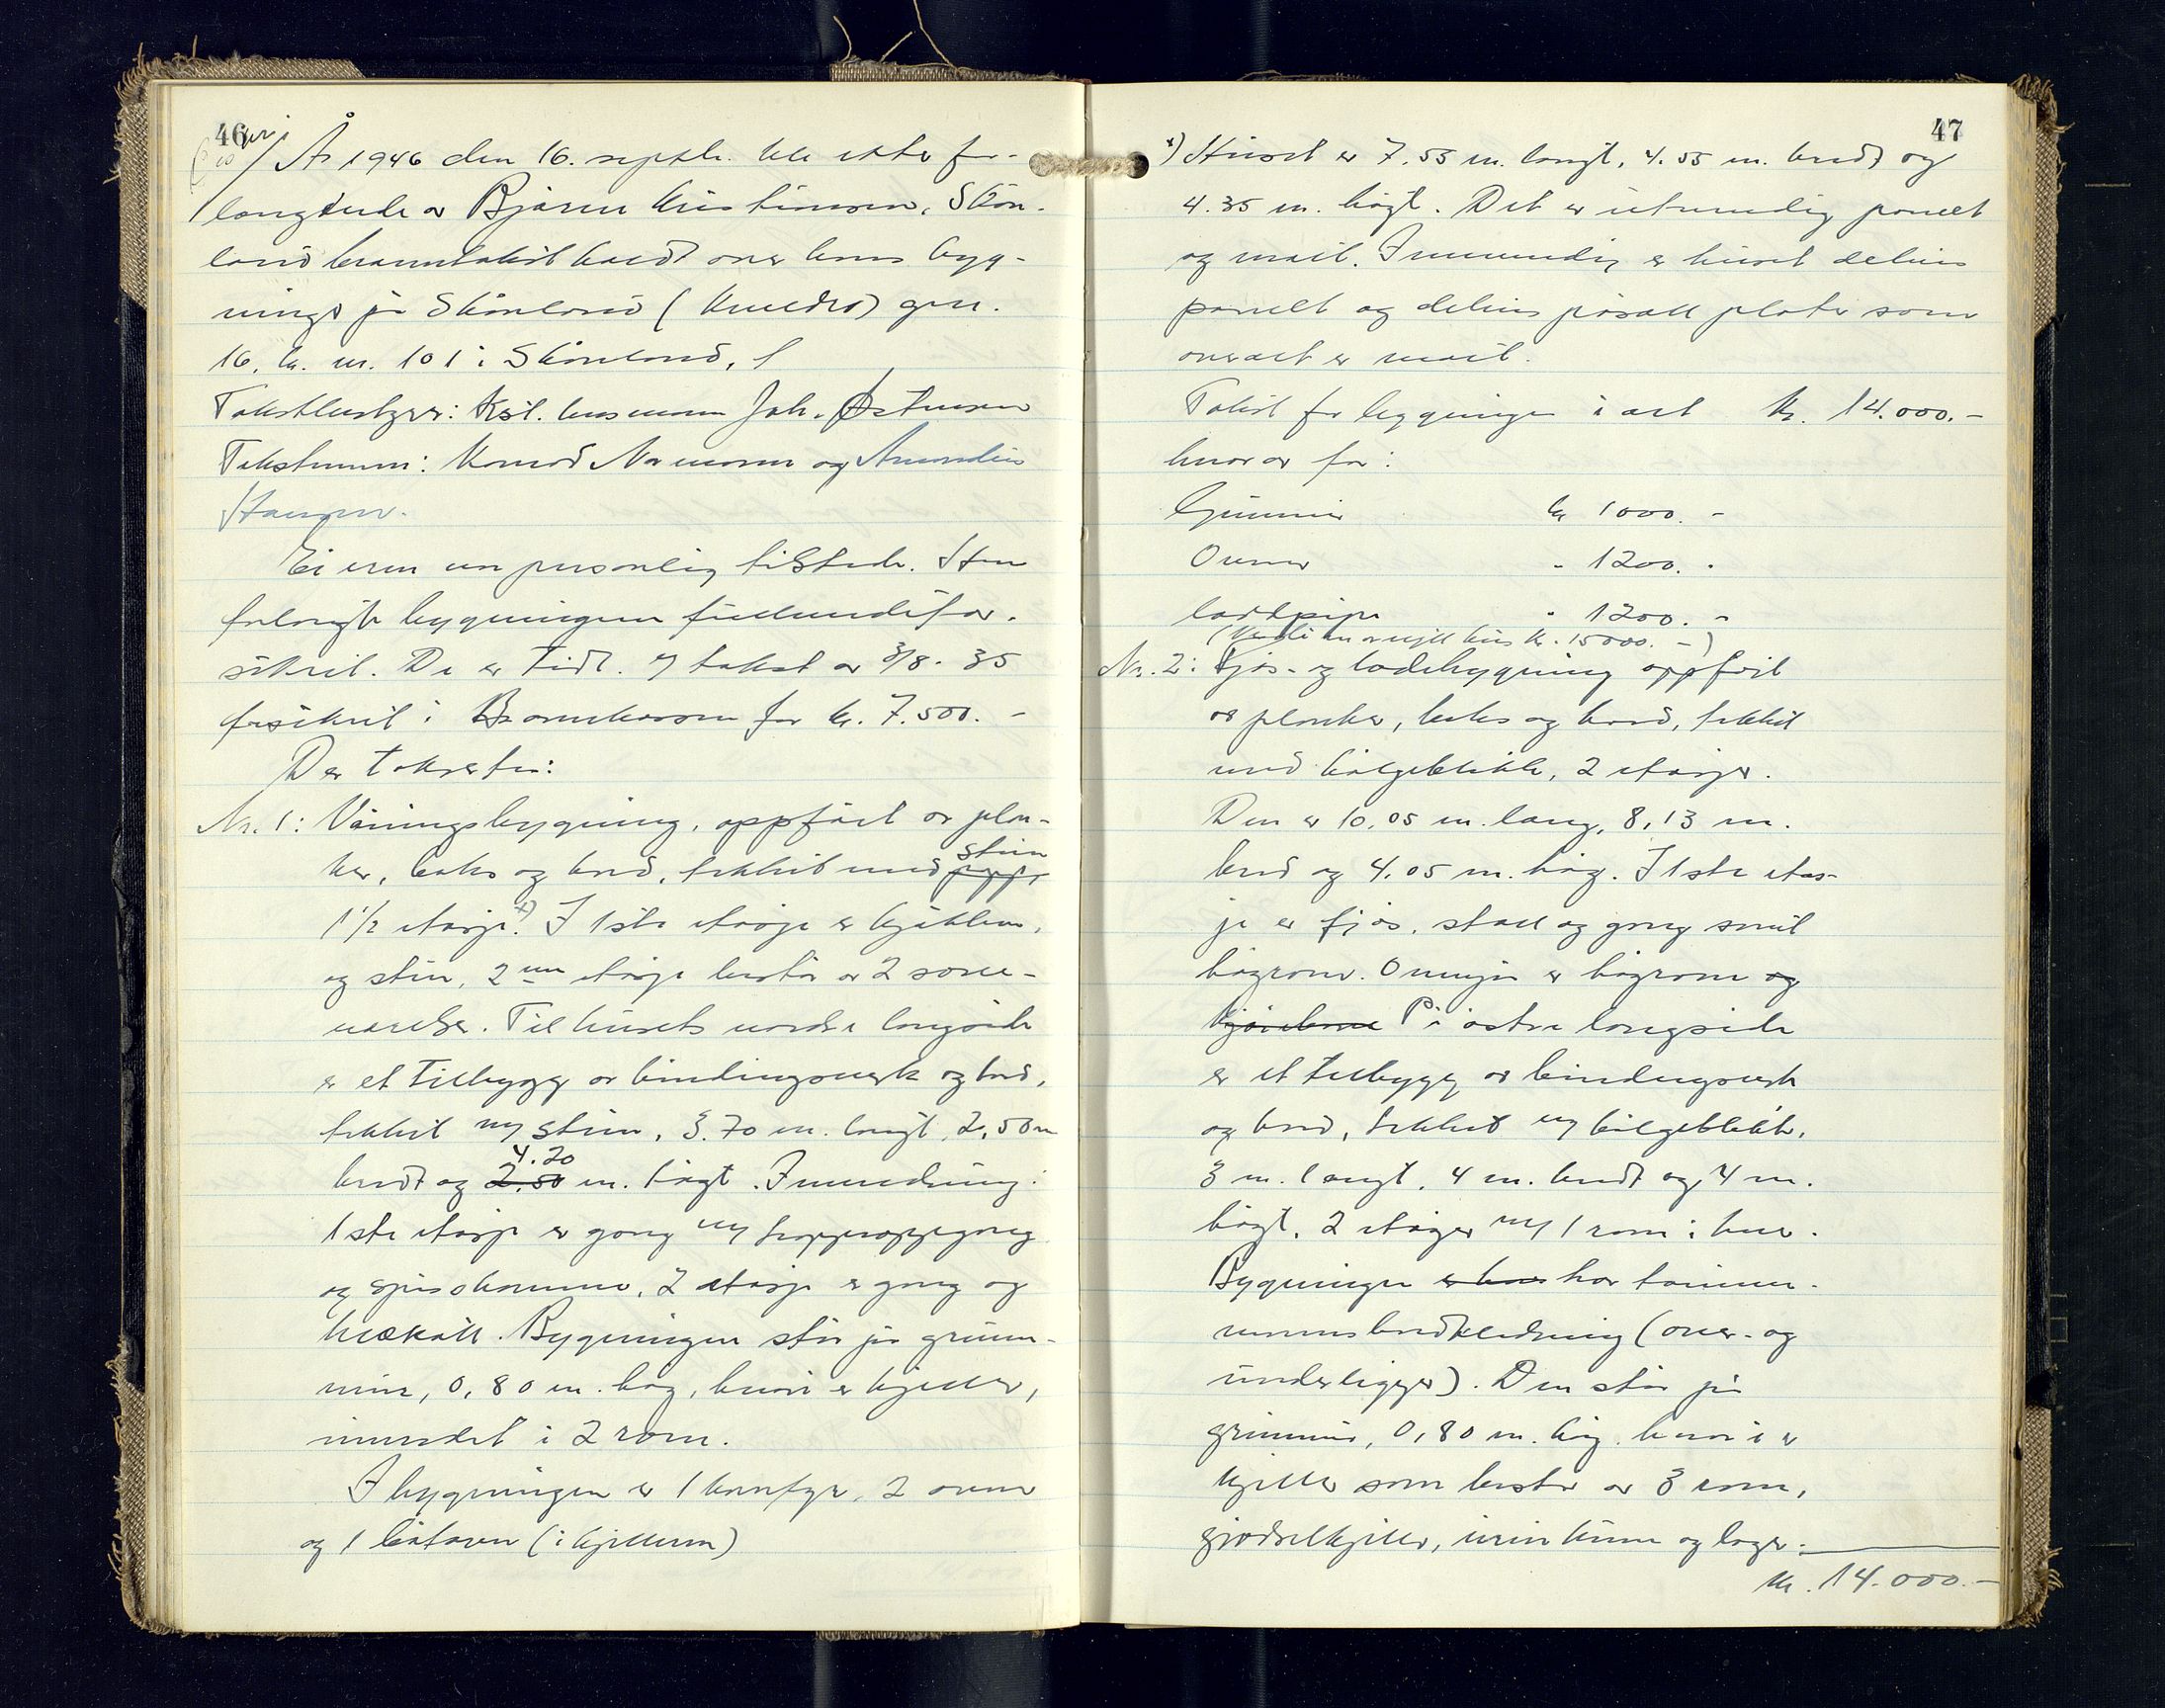 46
År 1946 den 16. septbr. ble etter for-
langende av Bjarne Kristiansen, Skån-
land branntakst holdt over hans byg-
ninger på Skånland ( ) gnr.
16, br. nr. 101 i Skånland.
Takstbestyrer: Kst. lensmann Joh. Østensen
Takstmenn: Konrad Normann og Amandus
Haugen.
Eieren var personlig tilstede. Han
forlangte bygningen fullverdifor-
sikret. De er tidl. e/ takst av 3/8-35
forsikret i Brannkassen for kr. 7.500.-
Der taksertes:
Nr. 1: Våningsbygning, oppført av plan-
ker, laks og bord, tekket med stein papp,
1 1/2 etasje. x) I 1ste etasje er kjøkken,
og stue, 2nen etasje består av 2 sove-
værelser. Til husets nordre langside
er et tilbygg av bindingsverk og bord,
tekket m/ stein, 3.70 m. langt, 2,50 m
bredt og 4.20 2.50 m. høgt. Innredning:
1ste etasje er gang m/ trappeoppgang
og spiskammer, 2 etasje er gang og
klekott. Bygningen står på grunn-
mur, 0,80 m. høg, hvori er kjeller,
innredet i 2 rom.
I bygningen er 1 komfyr, 2 ovner
og 1 (i kjelleren)
47
x) Huset er 7.55 m. langt, 4.55 m. bredt og
4.35 m. høgt. Det er utvendig panelt
og malt. Innvendig er huset delvis
panelt og delvis påsatt plater som
overalt er malt.
Takst for bygningen i alt kr. 14.000.-
hvorav for:
Grunnmur kr 1000.-
Ovner " 1200.-
Pipe " 1200.-
(Verdi av nytt hus kr. 15000.-)
Nr. 2: Fjøs- og ladebygning oppført
av planker, laks og bord, tekket
med bølgeblikk, 2 etasjer.
Den er 10,05 m. lang, 8,13 m.
bred og 4,05 m. høg. I 1ste etas-
je er fjøs, stall og gang samt
høgrom. Ovenpå er høgrom og
kjørebru På østre langside
er et tilbygg av bindingsverk
og bord, tekket m/ bølgeblikk,
3 m. langt, 4 m. bredt og 4 m.
høgt, 2 etager m/ 1 rom i hver.
Bygningen er har tømmer-
mannsbordkledning (over- og
underligger). Den står på
grunnmur, 0,80 m. høg. hvori er
kjeller som består av 3 rom,
gjødselkjeller, urinkum og lager.
kr. 14.000.-